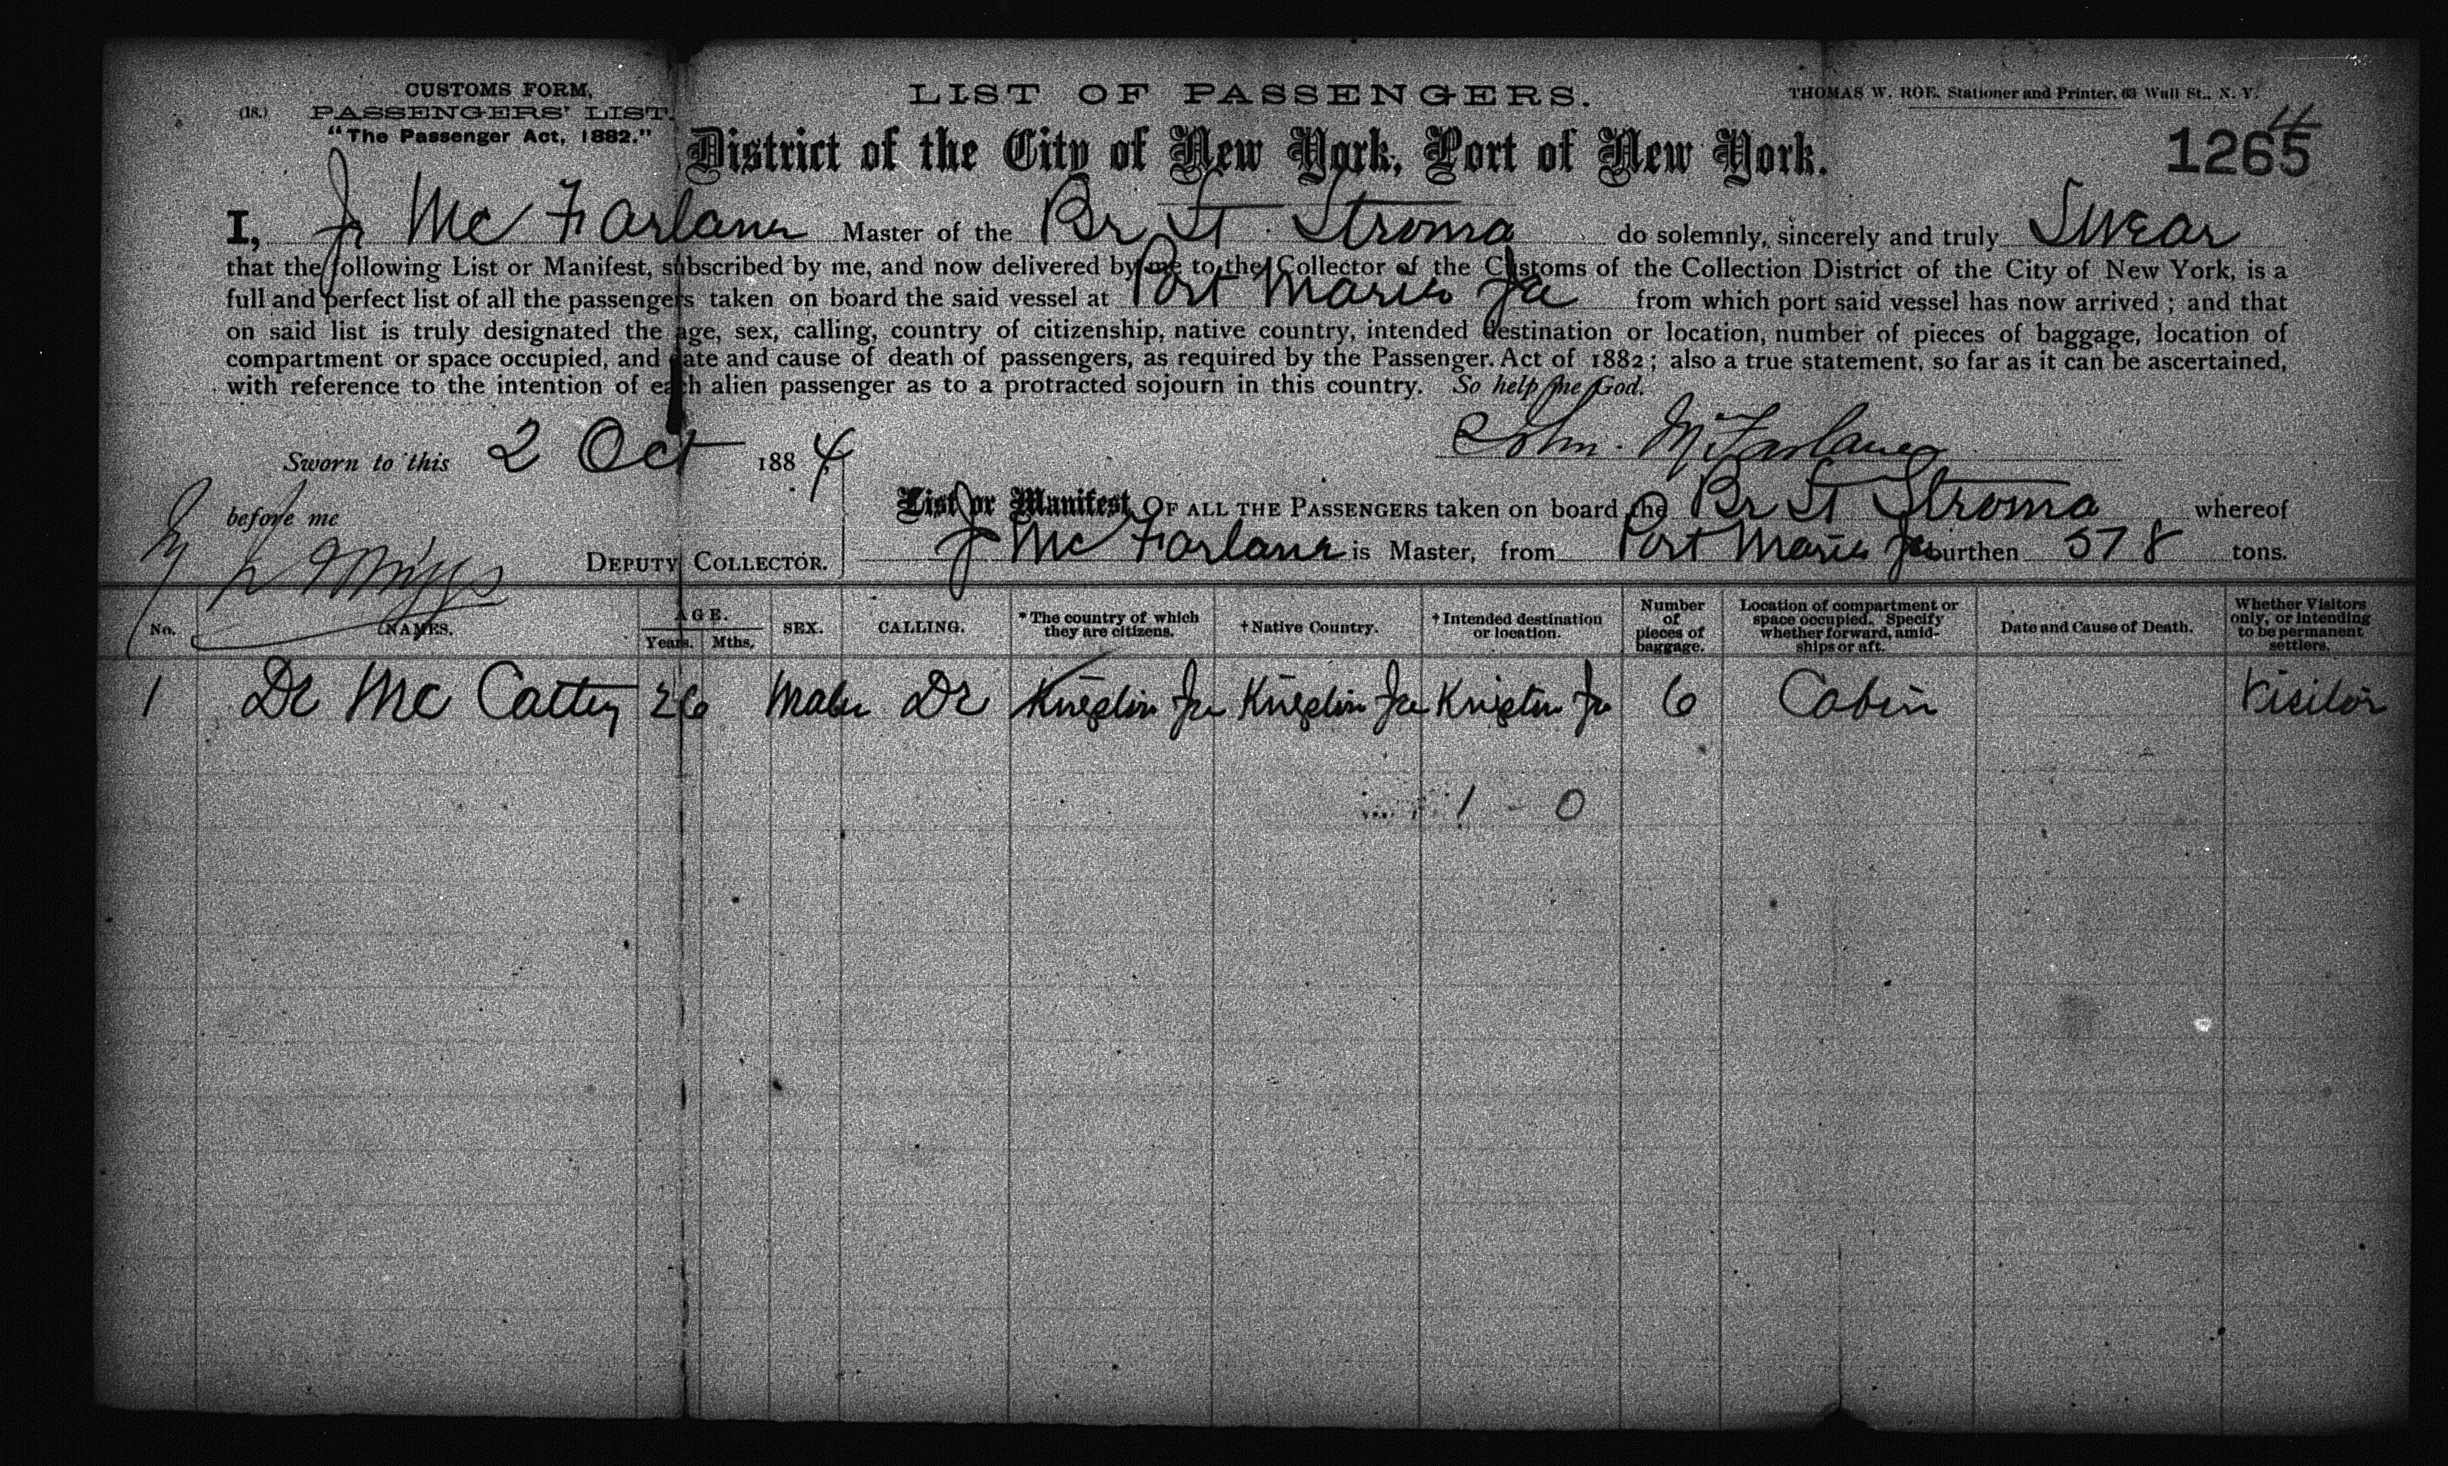 CUSTOMS FORM,
(18.) PASSENGERS' LIST.
"The Passenger Act, 1882."
LIST OF PASSENGERS.
THOMAS W. ROE, Stationer and Printer, 63 Wall St., N. Y.
District of the City of New York, Port of New York.
4
1265
I, J Mc Farlane Master of the Br St Stroma do solemnly, sincerely and truly Swear
that the following List or Manifest, subscribed by me, and now delivered by me to the Collector of the Customs of the Collection District of the City of New York, is a
full and perfect list of all the passengers taken on board the said vessel at Port Maria Ja from which port said vessel has now arrived; and that
on said list is truly designated the age, sex, calling, country of citizenship, native country, intended destination or location, number of pieces of baggage, location of
compartment or space occupied, and date and cause of death of passengers, as required by the Passenger Act of 1882; also a true statement, so far as it can be ascertained,
with reference to the intention of each alien passenger as to a protracted sojourn in this country. So help me God.
John McFarlane
Sworn to this 2 Oct 1884
before me
DEPUTY COLLECTOR.
List or Manifest OF ALL THE PASSENGERS taken on board the Br St Stroma whereof
J Mc Farlane is Master, from Port Maria Ja burthen 578 tons.
No. NAMES. AGE. Years. Mths. SEX. CALLING. *The country of which they are citizens. †Native Country. †Intended destination or location. Number of pieces of baggage. Location of compartment or space occupied. Specify whether forward, amidships or aft. Date and Cause of Death. Whether Visitors only, or intending to be permanent settlers.
1 Dr Mc Catty 26 Male Dr Kingston Ja Kingston Ja Kingston Ja 6 Cabin Visitor
1 - 0